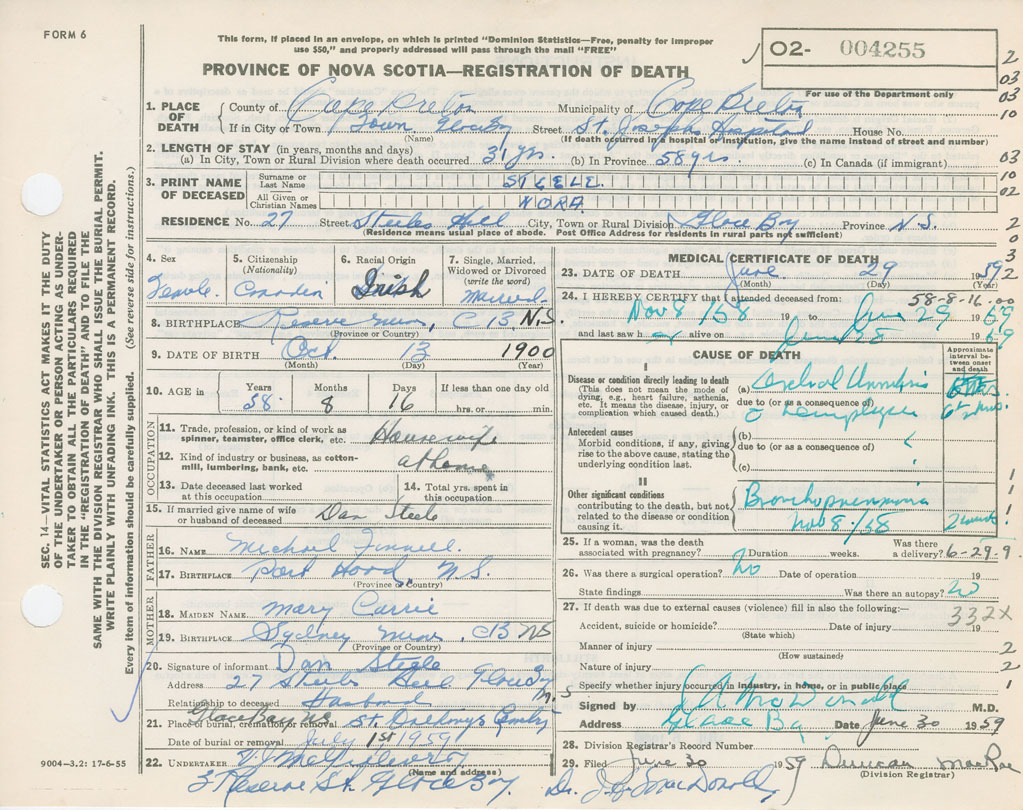 FORM 6
This form, if placed in an envelope, on which is printed "Dominion Statistics—Free, penalty for improper
use $50," and properly addressed will pass through the mail "FREE"
PROVINCE OF NOVA SCOTIA—REGISTRATION OF DEATH
O2- 004255
For use of the Department only
2
03
03
10
1. PLACE OF DEATH County of Cape Breton Municipality of Cape Breton
If in City or Town Town Glace Bay Street St. Josephs Hospital House No.
(Name) (If death occurred in a hospital or institution, give the name instead of street and number)
2. LENGTH OF STAY (in years, months and days)
(a) In City, Town or Rural Division where death occurred 31 yrs. (b) In Province 58 yrs. (c) In Canada (if immigrant)
03
10
02
3. PRINT NAME OF DECEASED
Surname or Last Name STEELE
All Given or Christian Names NORA
RESIDENCE No. 27 Street Steeles Hill City, Town or Rural Division Glace Bay Province N.S.
(Residence means usual place of abode. Post Office Address for residents in rural parts not sufficient)
4. Sex Female
5. Citizenship (Nationality) Canadian
6. Racial Origin Irish
7. Single, Married, Widowed or Divorced (write the word) Married
8. BIRTHPLACE Reserve Mines, C B, N.S.
(Province or Country)
9. DATE OF BIRTH Oct 13 1900
(Month) (Day) (Year)
10. AGE in Years Months Days If less than one day old
58 8 16 hrs. or min.
OCCUPATION
11. Trade, profession, or kind of work as
spinner, teamster, office clerk, etc. Housewife
12. Kind of industry or business, as cotton-
mill, lumbering, bank, etc. at home
13. Date deceased last worked
at this occupation
14. Total yrs. spent in
this occupation
15. If married give name of wife
or husband of deceased Dan Steele
FATHER
16. NAME Michael
17. BIRTHPLACE Port Hood N.S.
(Province or Country)
MOTHER
18. MAIDEN NAME Mary Currie
19. BIRTHPLACE Sydney Mines, CB NS
(Province or Country)
20. Signature of informant Dan Steele
Address 27 Steeles Hill Glace Bay N.S
Relationship to deceased Husband
Glace Bay NS
21. Place of burial, cremation or removal St. Anthony's Cemty
Date of burial or removal July 1st 1959
22. UNDERTAKER V.J.
(Name and address)
3 Reserve St. Glace Bay.
9004-3.2: 17-6-55
MEDICAL CERTIFICATE OF DEATH
23. DATE OF DEATH June 29 1959
(Month) (Day) (Year)
24. I HEREBY CERTIFY that I attended deceased from: 58-8-16.00
Nov 8/58 19 to June 29 1959
and last saw h er alive on June 1959
CAUSE OF DEATH
Approximate interval between onset and death
I
Disease or condition directly leading to death
(This does not mean the mode of
dying, e.g., heart failure, asthenia,
etc. It means the disease, injury, or
complication which caused death.)
(a) Cerebral
due to (or as a consequence of)
Antecedent causes
Morbid conditions, if any, giving
rise to the above cause, stating the
underlying condition last.
(b)
due to (or as a consequence of)
(c)
II
Other significant conditions
contributing to the death, but not
related to the disease or condition
causing it.
Bronchopneumonia
Nov 8/58
25. If a woman, was the death
associated with pregnancy? No Duration weeks. Was there
a delivery? 6-29-9
26. Was there a surgical operation? No Date of operation 19
State findings Was there an autopsy? No
27. If death was due to external causes (violence) fill in also the following:— 332X
Accident, suicide or homicide? Date of injury 19
(State which)
Manner of injury
(How sustained)
Nature of injury
Specify whether injury occurred in industry, in home, or in public place
Signed by M.D.
Address Glace Bay Date June 30 1959
28. Division Registrar's Record Number
29. Filed June 30 1959 Duncan MacRae
(Division Registrar)
Dr. MacDonald
SEC. 14—VITAL STATISTICS ACT MAKES IT THE DUTY
OF THE UNDERTAKER OR PERSON ACTING AS UNDER-
TAKER TO OBTAIN ALL THE PARTICULARS REQUIRED
IN THE "REGISTRATION OF DEATH" AND TO FILE THE
SAME WITH THE DIVISION REGISTRAR WHO SHALL ISSUE THE BURIAL PERMIT.
WRITE PLAINLY WITH UNFADING INK. THIS IS A PERMANENT RECORD.
Every item of information should be carefully supplied. (See reverse side for instructions.)